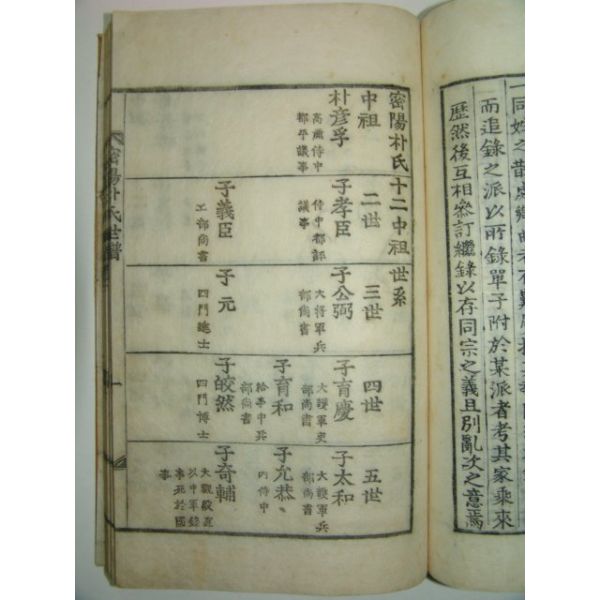 而追錄之派以所錄單子附於某派者考其家乘來
歷然後互相參訂繼錄以存同宗之義且別亂次之意焉
密陽朴氏十二中祖世系
中祖
朴彦孚
高麗侍中
都平議事
二世
子孝臣
侍中都評
議事
子義臣
工部尚書
三世
子公弼
大將軍兵
部尚書
子元
四門進士
四世
子育慶
大護軍吏
部尚書
子育和
給事中兵
部尚書
子皎然
四門博士
五世
子太和
大護軍兵
部尚書
子允恭
內侍中
子奇輔
大觀殿直
以中軍錄
事死於國
事
密陽朴氏世譜
一